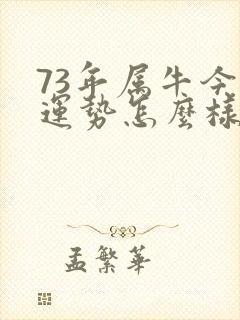 73年属牛今
運势怎麼樣
孟繁華